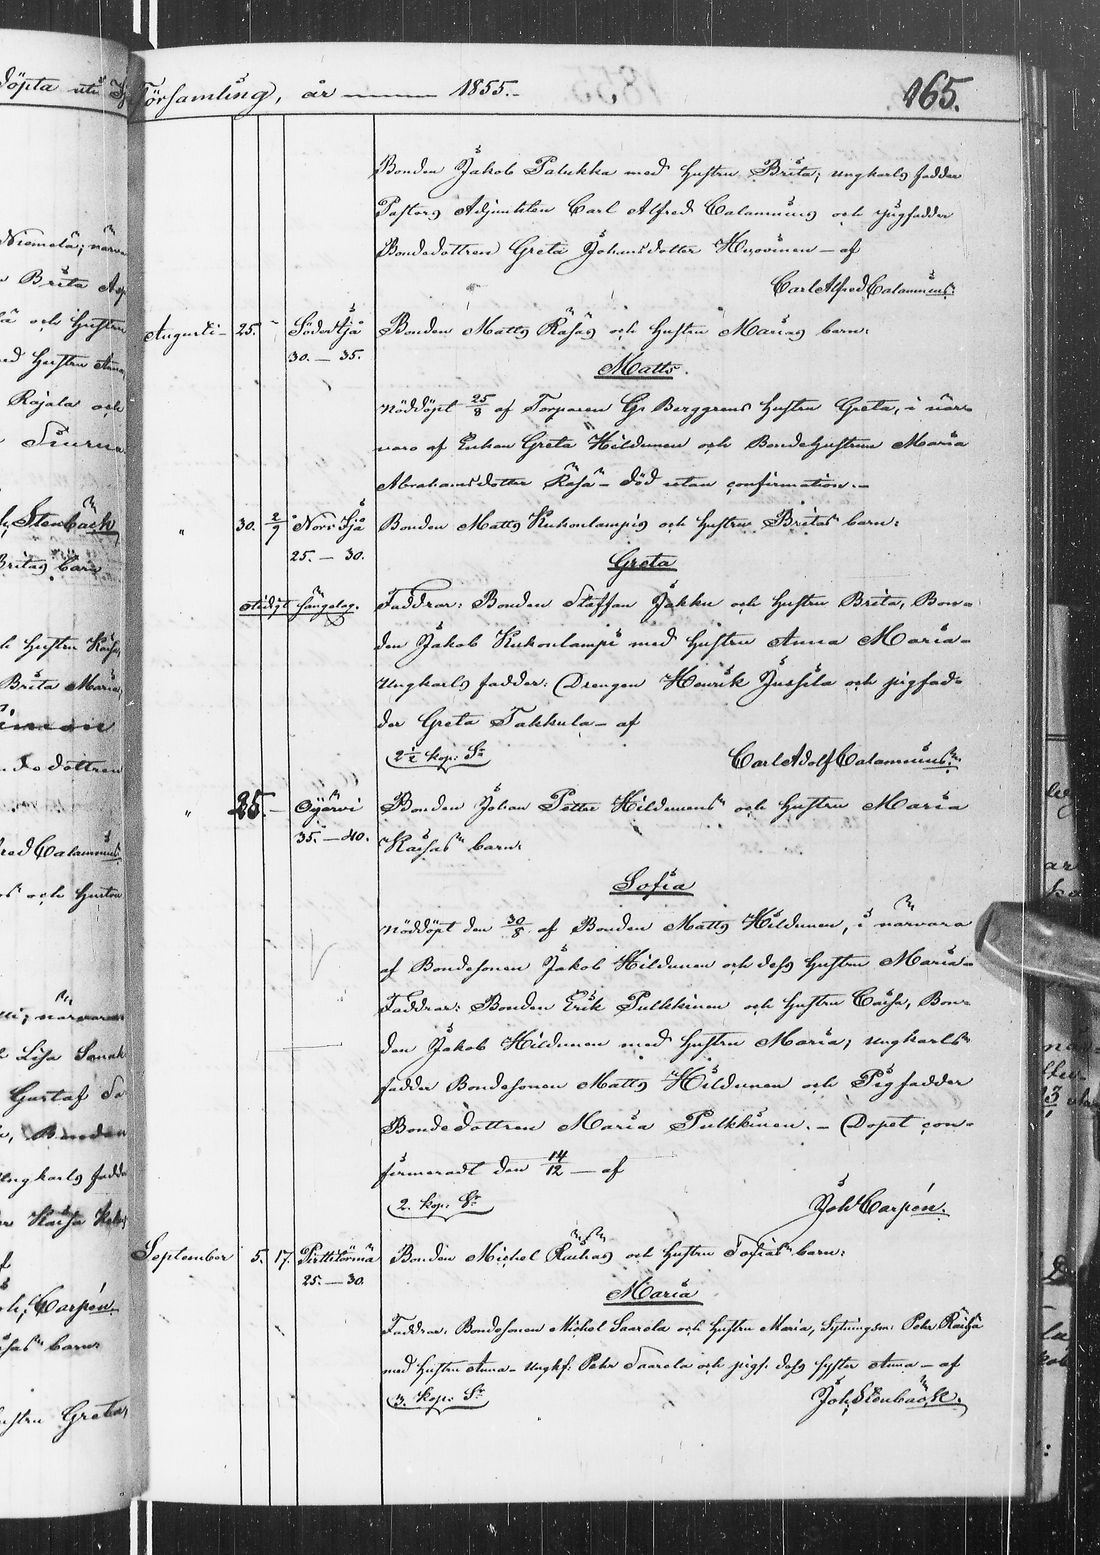 Församling, år 1855.
165.
Bonden Jakob Palukka med hustru Brita; ungkarls fadder
Pastors Adjunkten Carl Alfred Calamnius och pigfadder
Bondedottren Greta Johansdotter Huovinen – af
Carl Alfred Calamnius.
Augusti 25. Söder Sjå Bonden Matts Räsäs och hustru Marias barn:
30.–35. Matts.
nöddöpt 25/8 af Torparen Gr Berggrens hustru Greta, i när-
varo af Enkan Greta Hildunen och Bondehustrun Maria
Abrahamsdotter Räsä – död utan confirmation. –
" 30. 2/9 Norr Sjå Bonden Matts Kukonlampis och hustru Britas barn:
25.–30. Greta
stridgt sängelag. Faddrar: Bonden Staffan Jakku och hustru Brita, Bon-
den Jakob Kukonlampi med hustru Anna Maria –
Ungkarls fadder: Drengen Henrik Jussila och pigfad-
der Greta Takkula – af
2 1/2 kop: Sr Carl Adolf Calamnius.
" 25. – Ojärvi Bonden Johan Petter Hildunens och hustru Maria
35.–40. Kaisas barn:
Sofia
nöddöpt den 30/8 af Bonden Matts Hildunen, i närvara
af Bondesonen Jakob Hildunen och dess hustru Maria –
Faddrar: Bonden Erik Pulkkinen och hustru Caisa, Bon-
den Jakob Hildunen med hustru Maria; ungkarls
fadder Bondesonen Matts Hildunen och Pigfadder
Bondedottren Maria Pulkkinen. – Dopet con-
firmeradt den 14/12 – af
2. kop: Sr Joh Carpén.
September 5. 17. Pirttitörmä Bonden Michel Ruuhas och hustru Sofias barn:
25.–30 Maria
Faddrar: Bondesonen Michel Saarela och hustru Maria, Sytningsm: Pehr Räihä
med hustru Anna – ungkf: Pehr Saarela och pigf: dess syster Anna – af
3. kop: Sr Joh, Stenbäck.